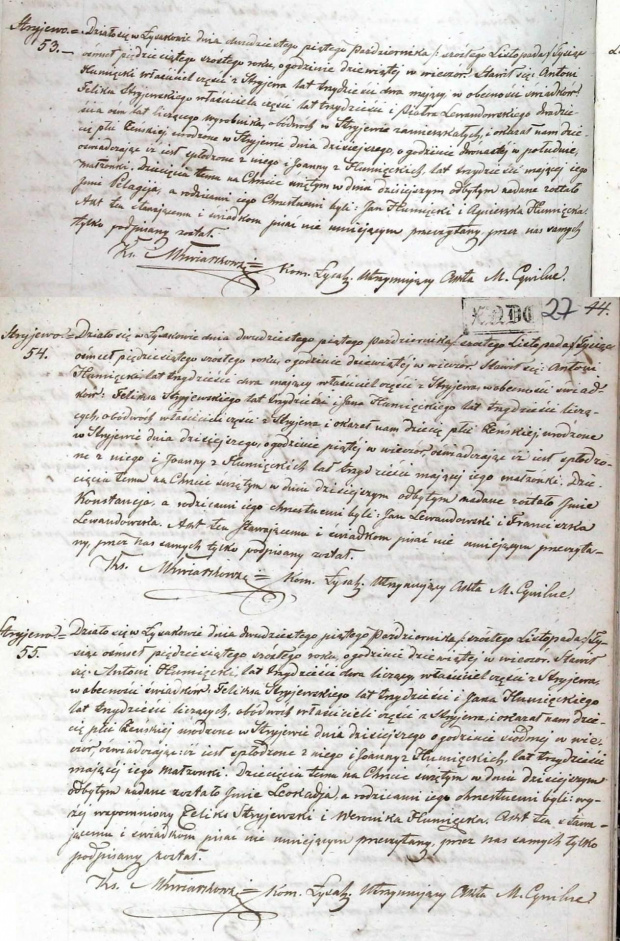 Stryjewo = Działo się w Łysakowie dnia dwudziestego piątego Października /: szóstego Listopada / Tysiąc
53. — ośmset pięćdziesiątego szóstego roku, o godzinie dziewiątej w wieczór. Stawił się Antoni
Humięcki właściciel części z Stryjewa lat trzydzieści dwa mający, w obecności świadków:
Felixa Stryjewskiego właściciela części lat trzydzieści i Piotra Lewandowskiego dwadzie-
ścia ośm lat liczącego wyrobnika, obódwóch w Stryjewie zamieszkałych, i okazał nam dzie-
cię płci żeńskiej urodzone w Stryjewie dnia dzisiejszego, o godzinie dwunastej w południe,
oświadczając iż jest spłodzone z niego i Joanny z Humięckich, lat trzydzieści mającej jego
małżonki. Dziecięciu temu na Chrzcie świętym w dniu dzisiejszym odbytym nadane zostało
Jmie Pelagija, a rodzicami jego Chrzestnemi byli: Jan Humięcki i Agnieszka Humięcka.
Akt ten stawającemu i świadkom pisać nie umiejącym przeczytany, przez nas samych
tylko podpisany został.
Ks. = Kom. Łysak: Utrzymujący Akta M. Cywilne.
27 44.
Stryjewo = Działo się w Łysakowie dnia dwudziestego piątego Października / szóstego Listopada / Tysiąc
54. ośmset pięćdziesiątego szóstego roku, o godzinie dziewiątej w wieczór. Stawił się: Antoni
Humięcki lat trzydzieści dwa mający właściciel części z Stryjewa, w obecności świad-
ków: Felixa Stryjewskiego lat trzydzieści i Jana Humięckiego lat trzydzieści liczą-
cych, obódwóch właścicieli części z Stryjewa i okazał nam dziecię płci żeńskiej, urodzone
w Stryjewie dnia dzisiejszego, o godzinie piątej w wieczór, oświadczając iż jest spłodzo-
ne z niego i Joanny z Humięckich lat trzydzieści mającej jego małżonki. Dzie-
cięciu temu na Chrzcie świętym w dniu dzisiejszym odbytym nadane zostało Jmie
Konstancja, a rodzicami jego chrzestnemi byli: Jan Lewandowski i Franciszka
Lewandowska. Akt ten Stawającemu i świadkom pisać nie umiejącym przeczyta-
ny, przez nas samych tylko podpisany został.
Ks. = Kom. Łysak: Utrzymujący Akta M. Cywilne
Stryjewo = Działo się w Łysakowie dnia dwudziestego piątego Października / szóstego Listopada / Ty-
55. siąc ośmset pięćdziesiątego szóstego roku, o godzinie dziewiątej w wieczór. Stawił
się: Antoni Humięcki, lat trzydzieści dwa liczący, właściciel części z Stryjewa,
w obecności świadków: Felixa Stryjewskiego lat trzydzieści i Jana Humięckiego
lat trzydzieści liczących, obódwóch właścicieli części z Stryjewa, i okazał nam dzie-
cię płci żeńskiej urodzone w Stryjewie dnia dzisiejszego o godzinie siódmej w wie-
czór, oświadczając iż jest spłodzone z niego i Joanny z Humięckich, lat trzydzieści
mającej jego małżonki. Dziecięciu temu na Chrzcie świętym w dniu dzisiejszym
odbytym nadane zostało Jmie Leokadja, a rodzicami jego chrzestnemi byli: wy-
żej wspomniony Felix Stryjewski i Weronika Humięcka. Akt ten stawa-
jącemu i świadkom pisać nie umiejącym przeczytany, przez nas samych tylko
podpisany został.
Ks. = Kom. Łysak: Utrzymujący Akta M. Cywilne